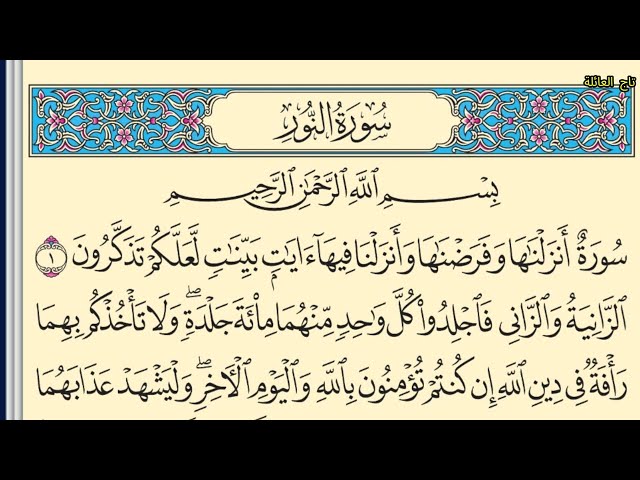 تاج العائلة
سُورَةُ النُّورِ
بِسْمِ اللَّهِ الرَّحْمَٰنِ الرَّحِيمِ
سُورَةٌ أَنزَلْنَٰهَا وَفَرَضْنَٰهَا وَأَنزَلْنَا فِيهَآ ءَايَٰتٍۭ بَيِّنَٰتٍ لَّعَلَّكُمْ تَذَكَّرُونَ ١
ٱلزَّانِيَةُ وَٱلزَّانِى فَٱجْلِدُوا۟ كُلَّ وَٰحِدٍ مِّنْهُمَا مِا۟ئَةَ جَلْدَةٍ ۖ وَلَا تَأْخُذْكُم بِهِمَا
رَأْفَةٌ فِى دِينِ ٱللَّهِ إِن كُنتُمْ تُؤْمِنُونَ بِٱللَّهِ وَٱلْيَوْمِ ٱلْـَٔاخِرِ ۖ وَلْيَشْهَدْ عَذَابَهُمَا